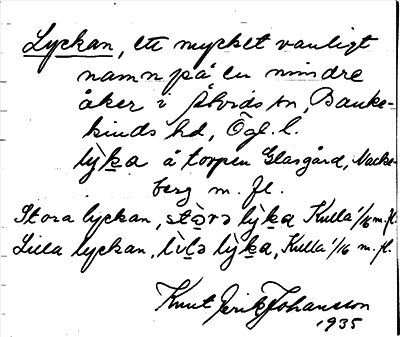 Lyckan, ett mycket vanligt
namn på en mindre
åker i Åtvids sn, Banke-
kinds hd, Ögl. l.
lỳka å torpen Glasgård, Nacke-
berg m. fl.
Stora lyckan, stòrə lỳka Kulla 1/16 m. fl.
Lilla lyckan, lìlə lỳka, Kulla 1/16 m. fl.
Knut Erik Johansson
1935